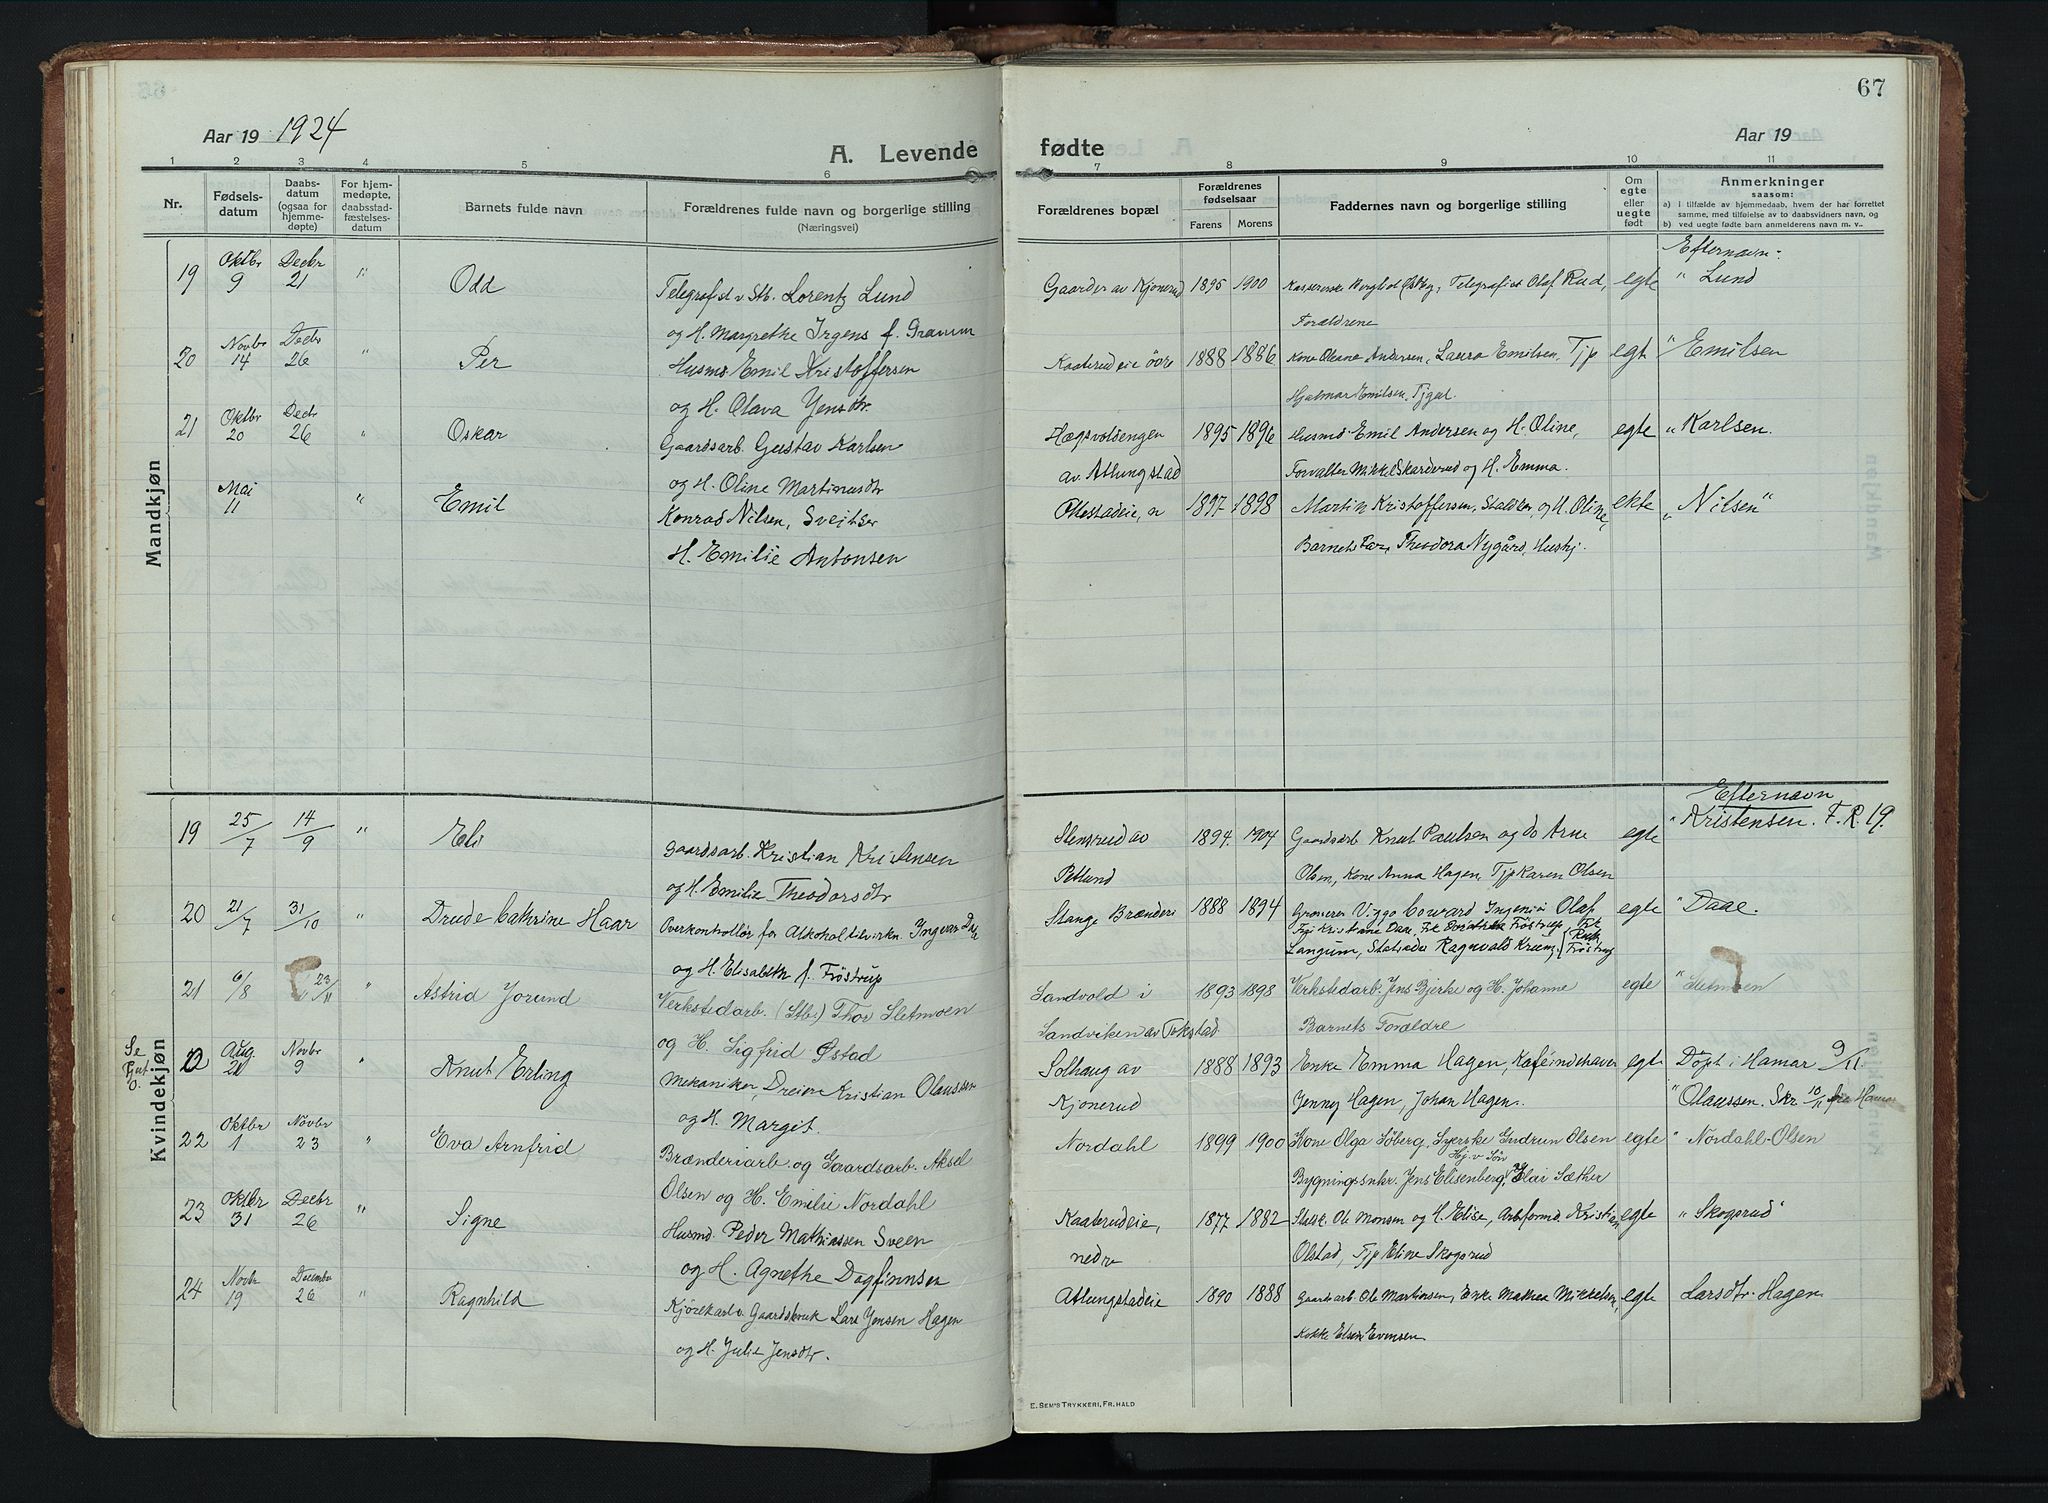 67
Aar 19 1924
A. Levende
fødte
Aar 19
1 2 3 4 5 6
7 8 9 10 11
Nr.
Fødsels-
datum
Daabs-
datum
(ogsaa for
hjemme-
døpte)
For hjem-
medøpte,
daabsstad-
fæstelses-
datum
Barnets fulde navn
Forældrenes fulde navn og borgerlige stilling
(Næringsvei)
Forældrenes bopæl
Forældrenes
fødselsaar
Farens Morens
Faddernes navn og borgerlige stilling
Om
egte
eller
uegte
født
Anmerkninger
saasom:
a) i tilfælde av hjemmedaab, hvem der har forrettet
samme, med tilføielse av to daabsvidners navn, og
b) ved uegte fødte barn anmelderens navn m. v..
Mandkjøn
Efternavn:
19 Oktbr 9 Decbr 21 " Odd Telegrafist v Stb. Lorentz Lund Gaarder av Kjonerud 1895 1900 Bergliot Østby, Telegrafist Olaf Rud, egte " Lund
og H. Margrethe Irgens f. Gramm Forældrene
20 Novbr 14 Decbr 26 " Per Husmd. Emil Kristoffersen Kaaterudeie övre 1888 1886 Kone Oleane Andersen, Laura Emilsen, Tjp egte " Emilsen
og H. Olava Jensdtr. Hjalmar Emilsen, Tjgut.
21 Oktbr 20 Decbr 26 " Oskar Gaardsarb. Gustav Karlsen Hægsvoldengen 1895 1896 Husmd Emil Andersen og H. Oline, egte " Karlsen.
og H. Oline Martinusdtr av Atlungstad Forvalter Mikkel Skarderud og H. Emma.
Mai 11 " Emil Konrad Nilsen, Sveitser Ottestadeie, n 1897 1898 Martin Kristoffersen, Staldkar, og H. Oline, ekte " Nilsen "
H. Emilie Antonsen Barnets Far, Theodora Nygård, Hushj.
Kvindekjøn
Efternavn
19 25/7 14/9 " Eli Gaardsarb. Kristian Kristensen Stensrud av 1894. 1904 Gaardsarb Knut Paulsen og do Arne egte " Kristensen. F.R. 19.
og H. Emilie Theodorsdtr Petlund Olsen, Kone Anna Hagen, Tjp Karen Olsen
20 21/7 31/10 " Drude Cathrine Haar Overkontrollör for Alkoholtilvirkn. Ingvar Daae Stange Brænderi 1888 1894 Viggo Coward Ingeniör Olaf egte " Daae.
og H. Elisabeth f. Fröstrup Langum, Ragnvald
21 6/8 23/11 " Astrid Jorund Verkstedarb. (Stb.) Thor Sletmoen Sandvold i 1893 1898 Verkstedarb. Jens Bjerke og H. Johanne egte " Sletmoen
og H. Sigfrid Østad Sandviken av Tokstad. Barnets Forældre
Se
Gut
0 Aug. 21 Novbr 9 " Knut Erling Mekaniker, Dreier Kristian Olaussen Solhaug av 1888 1893 Enke Emma Hagen, Kaféindehaver egte Döpt i Hamar 9/11.
og H. Margit. Kjonerud Jenny Hagen, Johan Hagen. " Olaussen. Skr 10/11 fra Hamar
22 Oktbr 1 Novbr 23 " Eva Arnfrid Brænderiarb. og Gaardsarb. Aksel Nordahl 1899 1900 Kone Olga Söberg, Syerske Gudrun Olsen egte " Nordahl-Olsen
Olsen og H. Emilie Nordahl Bygningssnkr. Jens Elisenberg, Sæther
23 Oktbr 31 Decbr 26 " Signe Husmd. Peder Mathiassen Sveen Kaaterudeie, 1877 1882 Ole Monsen og H. Elise, Arbformd. Kristian egte " Skogsrud "
og H. Agnethe Dagfinnsen nedre Olstad, Tjp Eline Skogsrud
24 Novbr 19 December 26 " Ragnhild Kjörekar v. Gaardsbruk Lars Jensen Hagen Atlungstadeie 1890 1888 Gaardsarb Ole Martinsen, Enke Mathea Mikkelsen, egte Larsdtr. Hagen
og H. Julie Jensdtr. Kokke Elsen Evensen
E. SEM'S TRYKKERI, FR. HALD